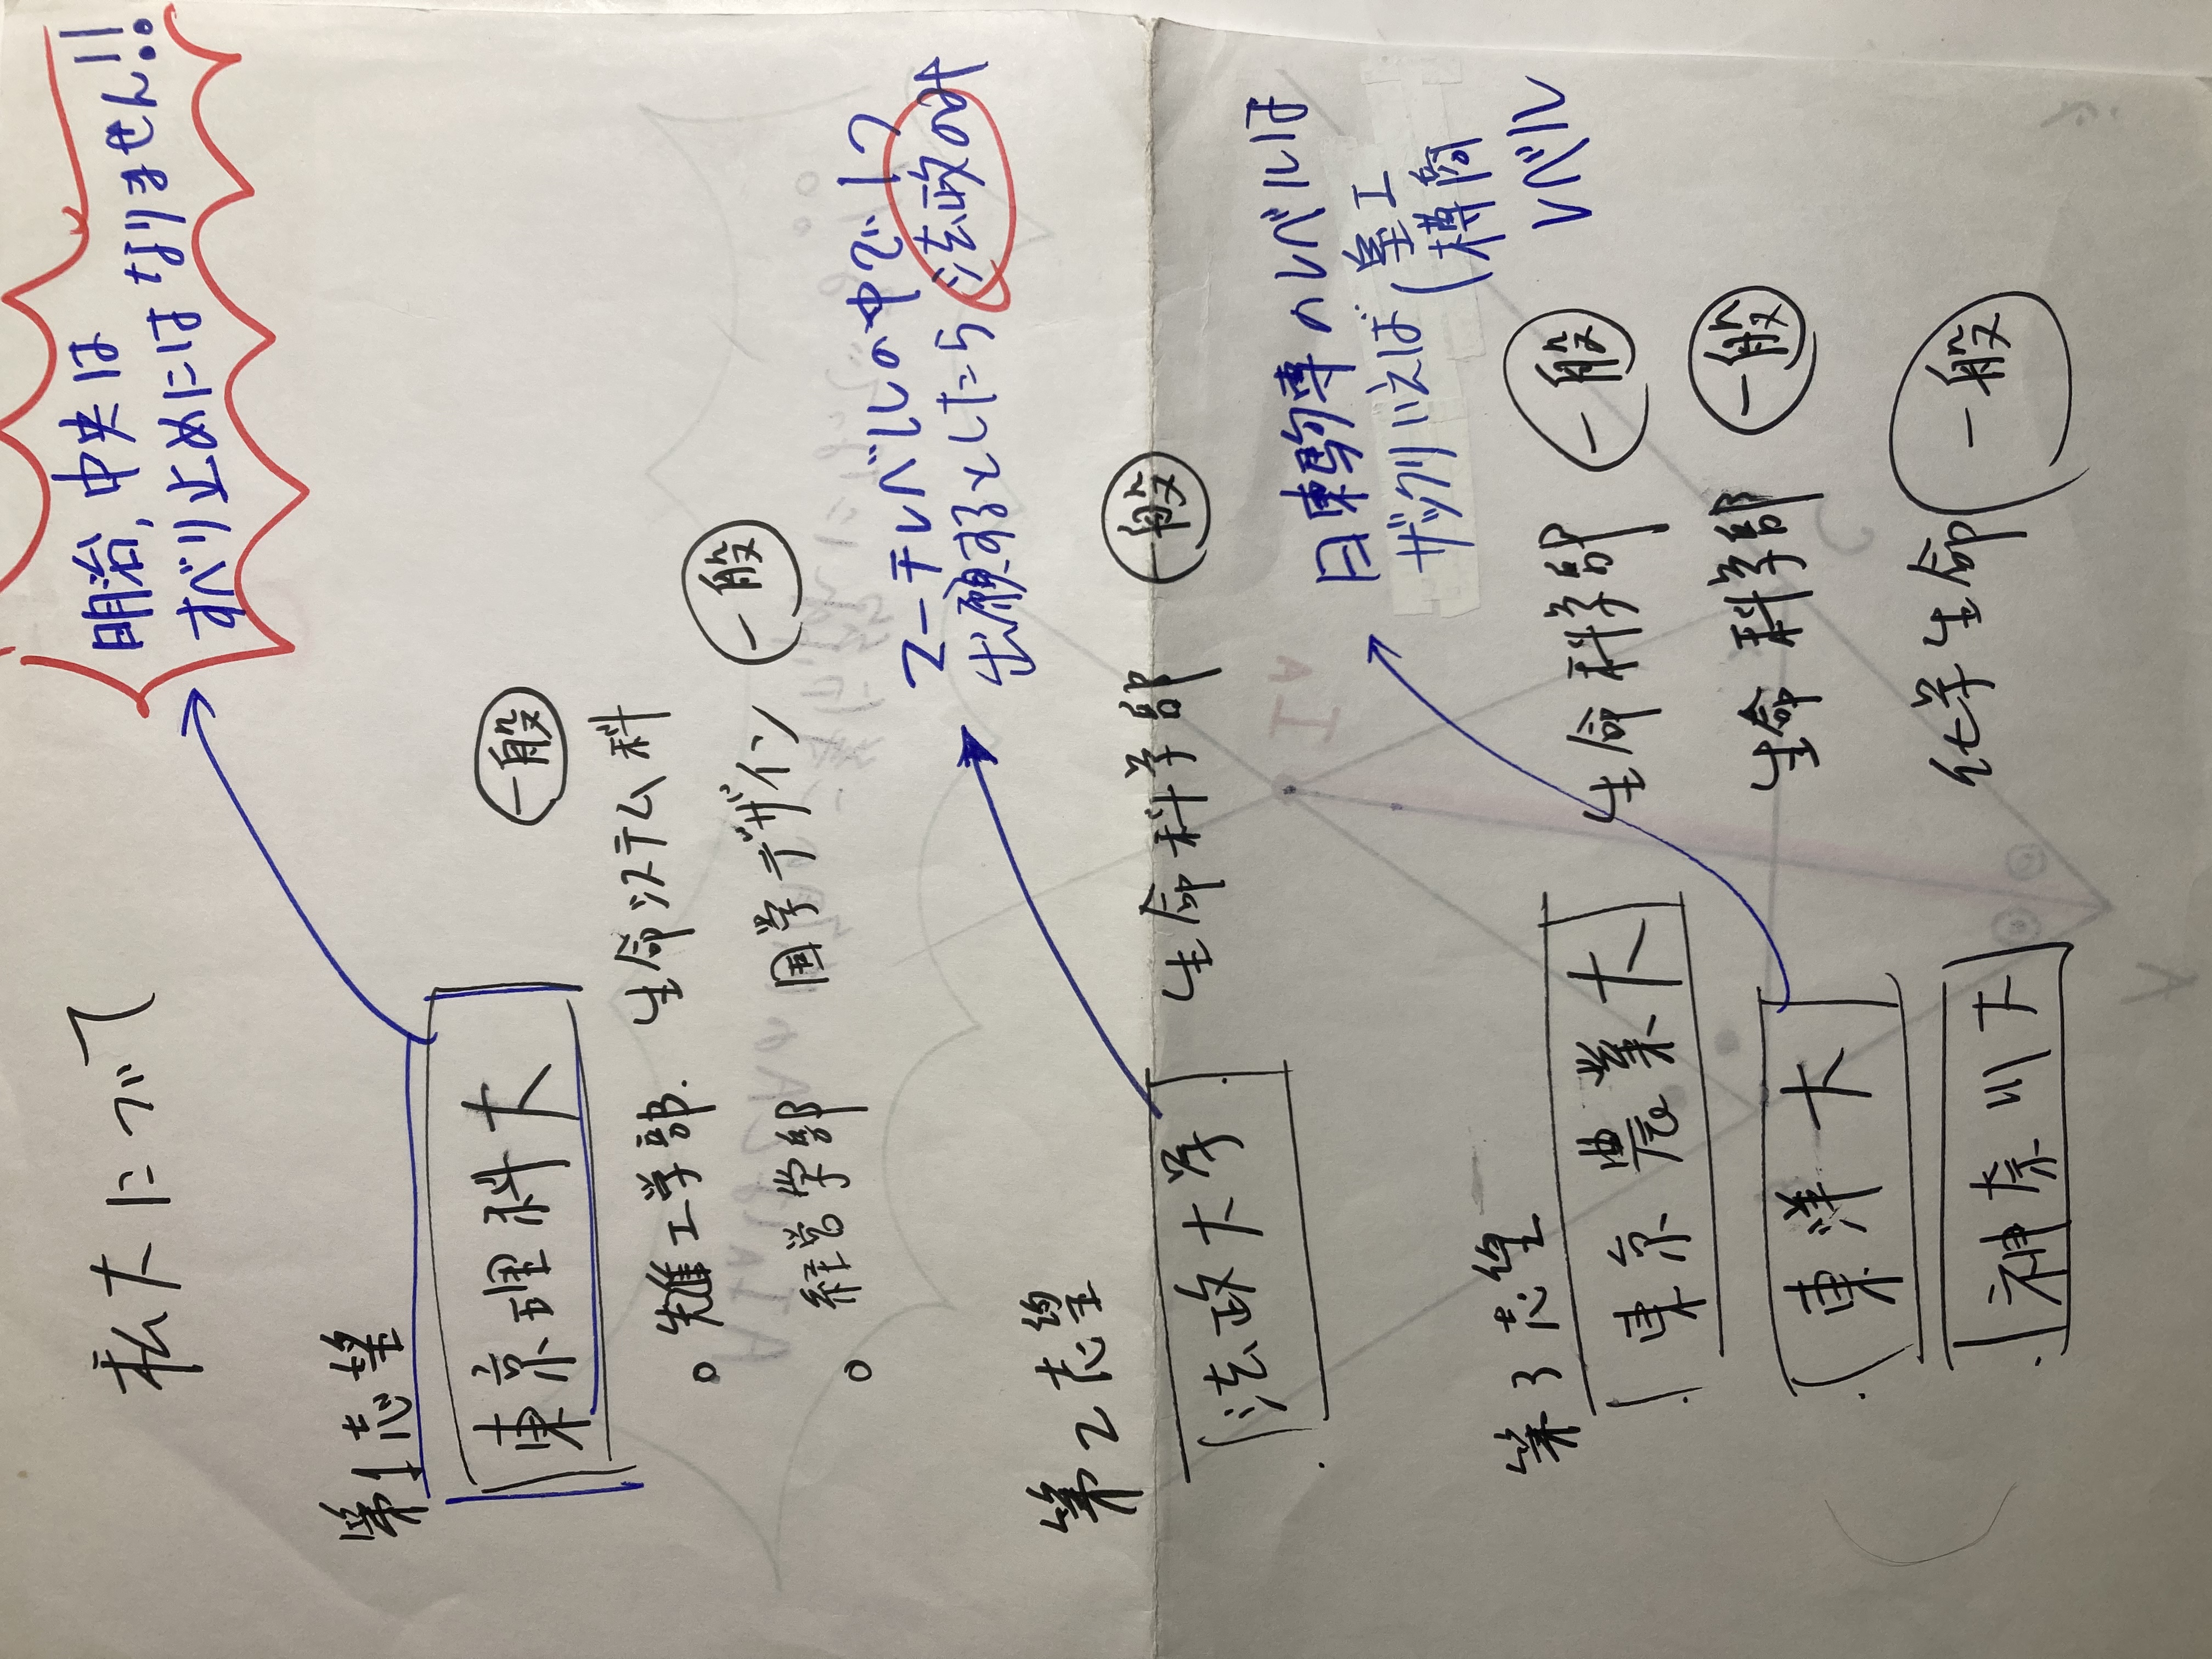 私大について
明治,中央は
すべり止めには なりません!!
第1志望
東京理科大
一般
先進工学部. 生命システム科
経営学部 国学デザイン
一般
マーチレベルの中で1つ
出願するとしたら 法政のみ
第2志望
法政大学
生命科学部
一般
日東駒専のレベルは
ザックリいえば
星工
樽商
レベル
第3志望
東京農業大
生命科学部
一般
東洋大
生命科学部
一般
神奈川大
化学生命
一般